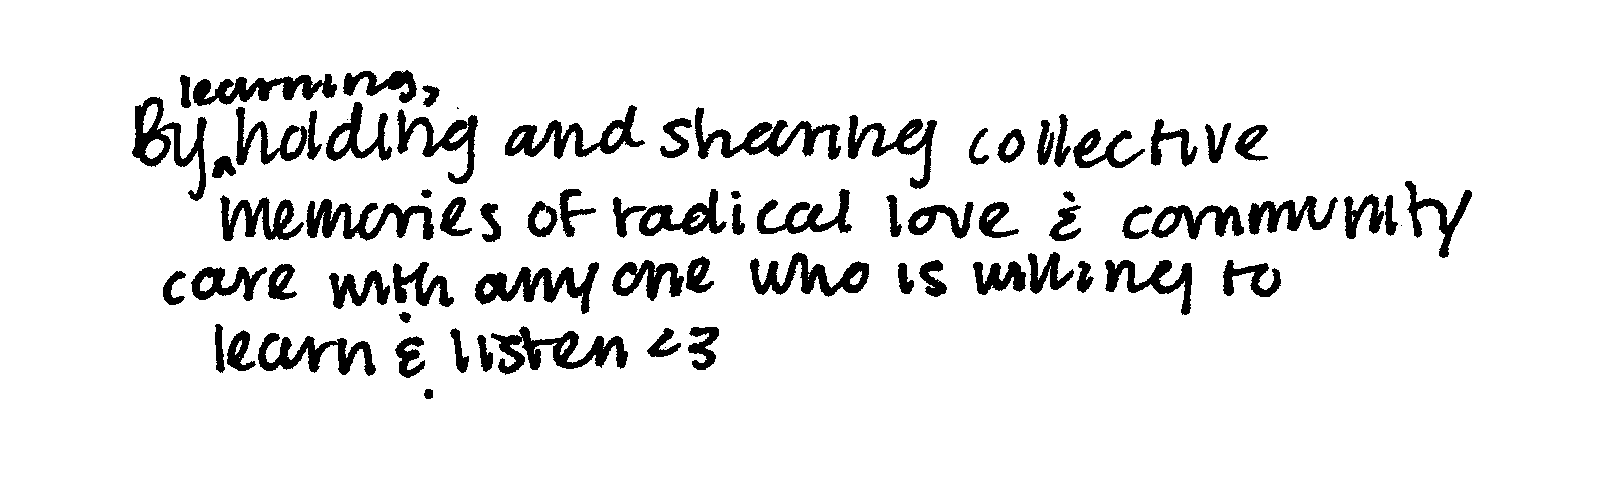 By learning, holding and sharing collective
memories of radical love & community
care with anyone who is willing to
learn & listen <3